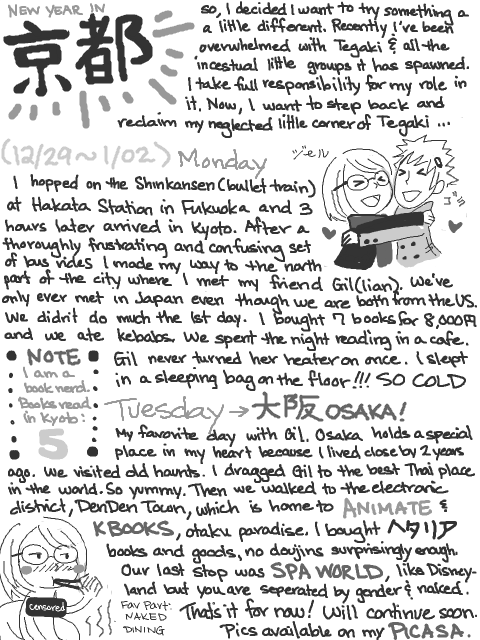 NEW YEAR IN
京都
so, I decided I want to try something a
a little different. Recently I've been
overwhelmed with Tegaki & all the
incestual little groups it has spawned.
I take full responsibility for my role in
it. Now, I want to step back and
reclaim my neglected little corner of Tegaki ...
(12/29~1/02) Monday
I hopped on the Shinkansen (bullet train)
at Hakata Station in Fukuoka and 3
hours later arrived in Kyoto. After a
thoroughly frustrating and confusing set
of bus rides I made my way to the north
part of the city where I met my friend Gil(lian). We've
only ever met in Japan even though we are both from the US.
We didn't do much the 1st day. I bought 7 books for 8,000円
and we ate kebabs. We spent the night reading in a cafe.
Gil never turned her heater on once. I slept
in a sleeping bag on the floor!!! SO COLD
ジェル
NOTE
I am a
book nerd.
Books read
in Kyoto:
5
Tuesday → 大阪 OSAKA!
My favorite day with Gil. Osaka holds a special
place in my heart because I lived close by 2 years
ago. We visited old haunts. I dragged Gil to the best Thai place
in the world. So yummy. Then we walked to the electronic
district, DenDen Town, which is home to ANIMATE &
KBOOKS, otaku paradise. I bought ヘタリア
books and goods, no doujins surprisingly enough.
Our last stop was SPA WORLD, like Disney-
land but you are seperated by gender & naked.
That's it for now! Will continue soon.
Pics available on my PICASA.
censored
Fav Part:
NAKED
DINING